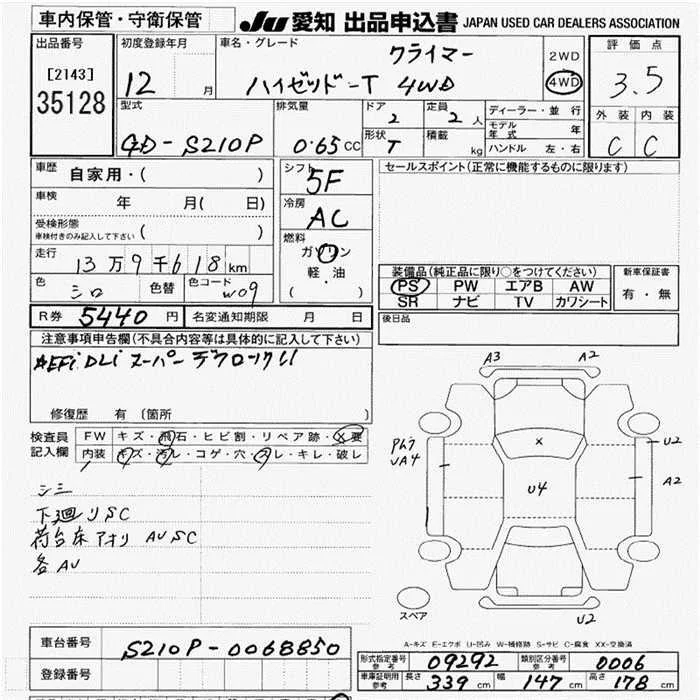 車内保管・守衛保管
JU 愛知 出品申込書 JAPAN USED CAR DEALERS ASSOCIATION
出品番号
[2143]
35128
初度登録年月
12 月
車名・グレード
クライマー
ハイゼット-T 4WD
2WD
4WD
評価点
3.5
外装 内装
C C
型式
GD-S210P
排気量
0.65 CC
ドア
2
定員
2 人
形状
T
積載
kg
ディーラー・並行
モデル年式 年
ハンドル 左・右
車歴 自家用・( )
車検 年 月( 日)
受検形態
車検付きのみ記入して下さい ( )
走行 13万9千618km
色 シロ 色替 色コード W09
シフト
5F
冷房
AC
燃料
ガソリン
軽・油
( )
セールスポイント(正常に機能するものに限ります)
装備品(純正品に限り○をつけてください)
PS PW エアB AW
SR ナビ TV カワシート
新車保証書
有・無
R券 5440円 名変通知期限 月 日
後日品
注意事項申告欄(不具合内容等は具体的に記入して下さい)
スーパーデフロック
修復歴 有 [箇所 ]
検査員記入欄
FW キズ・飛石・ヒビ割・リペア跡・X要
内装 キズ・汚レ・コゲ・穴・スレ・キレ・破レ
シミ
下廻りSC
荷台床アオリ AUSC
各AU
A3 A2
U2
A2
UA4
U4
X
U2
スペア
A-キズ E-エクボ U-凹み W-補修跡 S-サビ C-腐食 XX-交換済
車台番号 S210P-0068850
登録番号
形式指定番号 参考 09292 類別区分番号 参考 0006
車庫証明用 参考 長さ 339 cm 幅 147 cm 高さ 178 cm